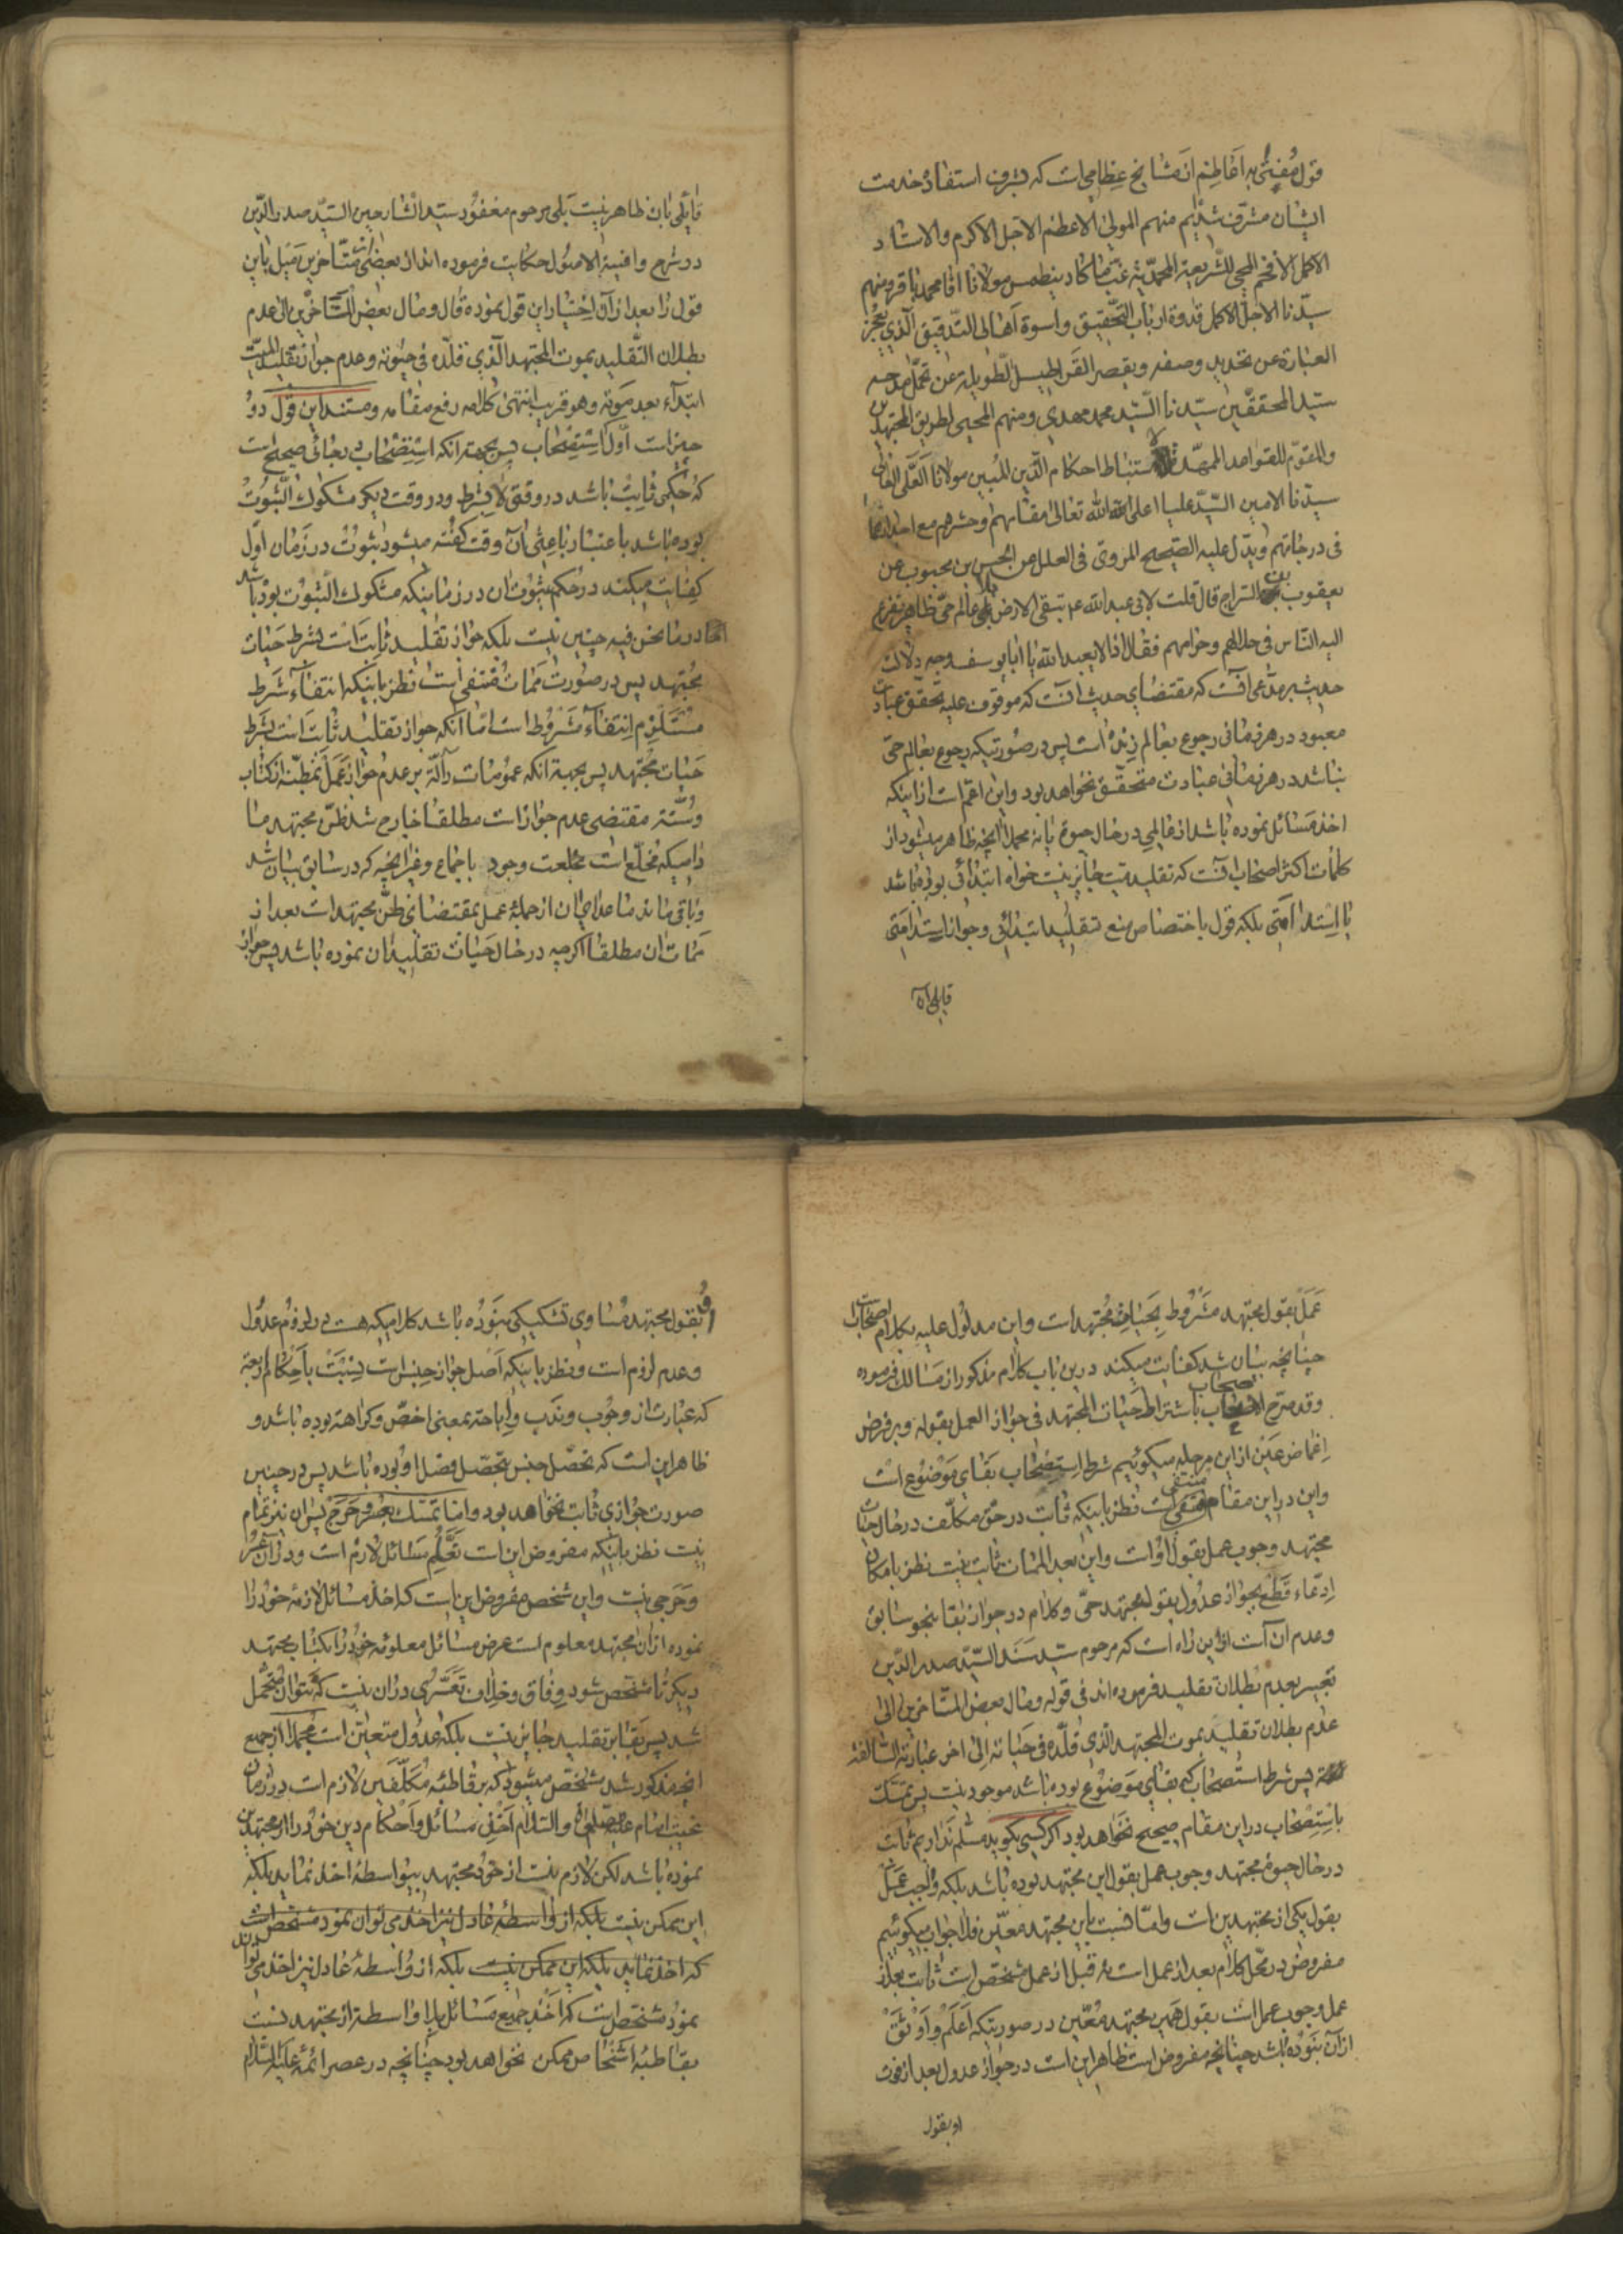 قول مُفتیٰ به اعاظم از مشایخ عظامی است که بشرف استفاده خدمت
ایشان مشرّف شدیم منهم المولی الاعظم الاجل الاکرم والاستاد
الاکمل الافخم المحیی للشریعة المحمدیّة غبّ ما کاد ینطمس مولانا اقا محمد باقر ومنهم
سیّدنا الاجل الاکمل قدوة ارباب التحقیق واسوة اهالی التدقیق الذی یعجز
العبارة عن تحدید وصفه ویقصر القراطیس الطویلة عن تحمّل مدحه
سیّد المحققین سیّدنا السیّد محمد مهدی ومنهم المحیی لطریق المجتهدین
والمقوّم للقواعد الممهّدة لاستنباط احکام الدّین المبین مولانا العلّی العالی
سیّدنا الامین السیّد علیا اعلی الله تعالی مقامهم وحشرهم مع اجدادهم
فی درجاتهم ویدل علیه الصحیح المروی فی العلل عن الحسن بن محبوب عن
یعقوب بن السراج قال قلت لابی عبد الله ع تبقی الارض بلا عالم حیّ ظاهر تفزع
الیه الناس فی حلالهم وحرامهم فقال اذا لا یعبد الله یا ابا یوسف وجه دلالت
حدیث بر مدّعی آنست که مقتضای حدیث آنست که موقوف علیه تحقّق عبادت
معبود در هر زمانی رجوع بعالم زنده است پس در صورتیکه رجوع بعالم حیّ
نباشد در هر زمانی عبادت متحقّق نخواهد بود واین اعمّ است از اینکه
اخذ مسائل نموده باشد از عالمی در حال حیوة یا نه مجملا آنچه ظاهر میشود از
کلمات اکثر اصحاب آنست که تقلید میت جایز نیست خواه ابتدائی بوده باشد
یا استدامتی بلکه قول باختصاص منع بتقلید ابتدائی وجواز استدامتی
قایلی آن
قایلی بان ظاهر نیست بلی مرحوم مغفور سید الشارحین السیّد صدر الدّین
در شرح وافیة الاصول حکایت فرموده اند از بعضی متاخرین میل باین
قول را بعد از آن اختیار این قول نموده قال ومال بعض المتاخرین الی عدم
بطلان التقلید بموت المجتهد الذی قلّده فی حیوته وعدم جواز تقلید المیّت
ابتداء بعد موته وهو قریب انتهی کلامه رفع مقامه ومستند این قول دو
چیز است اول استصحاب پس بجهة آنکه استصحاب در جائی صحیح است
که حکمی ثابت باشد در وقتی لا بشرط ودر وقت دیگر مشکوک الثبوت
بوده باشد باعتبار باعثی آن وقت گفته میشود ثبوت در زمان اول
کفایت میکند در حکم بثبوت ان در زمانیکه مشکوک الثبوت بوده باشد
اما در ما نحن فیه چنین نیست بلکه جواز تقلید ثابت است بشرط حیات
مجتهد پس در صورت ممات منتفی است نظر باینکه انتفاء شرط
مستلزم انتفاء مشروط است امّا آنکه جواز تقلید ثابت است بشرط
حیات مجتهد پس بجهة آنکه عمومات دالّة بر عدم جواز عمل بمظنّه از کتاب
وسنّت مقتضی عدم جواز است مطلقا خارج شد ظنّ مجتهد ما
دامیکه مخلّع است بخلعت وجود باجماع وغیر آنچه که در سابق بیان شد
وباقی ماند ما عدای ان از جملهٔ عمل بمقتضای ظنّ مجتهد است بعد از
ممات ان مطلقا اگرچه در حال حیات تقلید ان نموده باشد پس جواز
عمل بقول مجتهد مشروط بحیات مجتهد است واین مدلول علیه بکلام اصحابست
چنانچه بیان شد کفایت میکند درین باب کلام مذکور از مسالک فرموده
وقد صرّح الاصحاب باشتراط حیات المجتهد فی جواز العمل بقوله وبر فرض
اغماض عین از این مرحله میگوئیم شرط استصحاب بقای موضوع است
واین در این مقام منتفی است نظر باینکه ثابت در حق مکلّف در حال حیات
مجتهد وجوب عمل بقول اوات واین بعد الممات ثابت نیست نظر بامکان
ادّعاء قطع بجواز عدول بقول مجتهد حیّ وکلام در جواز بقا بنحو سابق
وعدم ان است از این راه است که مرحوم سیّد سند السیّد صدر الدّین
تعبیر بعدم بطلان تقلید فرموده اند فی قوله ومال بعض المتاخرین الی
عدم بطلان تقلید بموت المجتهد الذی قلّده فی حیاته الی اخر عبارته السالفة
پس شرط استصحاب که بقای موضوع بوده باشد موجود نیست پس تمسّک
باستصحاب در این مقام صحیح نخواهد بود اگر کسی بگوید مسلّم نداریم ثابت
در حال حیوة مجتهد وجوب عمل بقول این مجتهد بوده باشد بلکه واجب عمل
بقول یکی از مجتهدین است وامّا نسبت باین مجتهد معیّن فلا جواب میگوئیم
مفروض در محل کلام بعد از عمل است نه قبل از عمل مشخّص است ثابت بعد از
عمل وجوب عمل است بقول همین مجتهد معیّن در صورتیکه اعلم واوثق
از آن نبوده باشد چنانچه مفروض است ظاهر این است در جواز عدول بعد از فوت
او بقول
او بقول مجتهد مساوی تشکیکی نبوده باشد کلامیکه هست در لزوم عدول
وعدم لزوم است ونظر باینکه اصل جواز جنس است نسبت باحکام اربعة
که عبارت از وجوب وندب واباحة بمعنی اخصّ وکراهة بوده باشد و
ظاهر این است که تحصّل جنس بتحصّل فصل او بوده باشد پس در چنین
صورت جوازی ثابت نخواهد بود واما تمسّک بعسر وحرج پس ان نیز تمام
نیست نظر باینکه مفروض این است تعلّم مسائل لازم است ودر آن عسر
وحرجی نیست واین شخص مفروض این است که اخذ مسائل لازمهٔ خود را
نموده از ان مجتهد معلوم است عرض مسائل معلومه خود را بکتاب مجتهد
دیگر تا مشخص شود وفاق وخلاف تعسّری در ان نیست که نتوان متحمّل
شد پس بقا بر تقلید جایز نیست بلکه عدول متعیّن است مجملا از جمیع
آنچه مذکور شد مشخّص میشود که بر قاطبهٔ مکلّفین لازم است در زمان
غیبت امام علیه الصلوة والسلام اخذ مسائل واحکام دین خود را از مجتهدین
نموده باشد لکن لازم نیست از خود مجتهد بیواسطه اخذ نماید بلکه
این ممکن نیست بلکه از واسطهٔ عادل نیز اخذ می توان نمود مشخص است
که اخذ نماید بلکه این ممکن نیست بلکه از واسطهٔ عادل نیز اخذ می تواند
نمود مشخّص است که اخذ جمیع مسائل بلا واسطه از مجتهد نسبت
بقاطبهٔ اشخاص ممکن نخواهد بود چنانچه در عصر ائمّه علیهم السلام